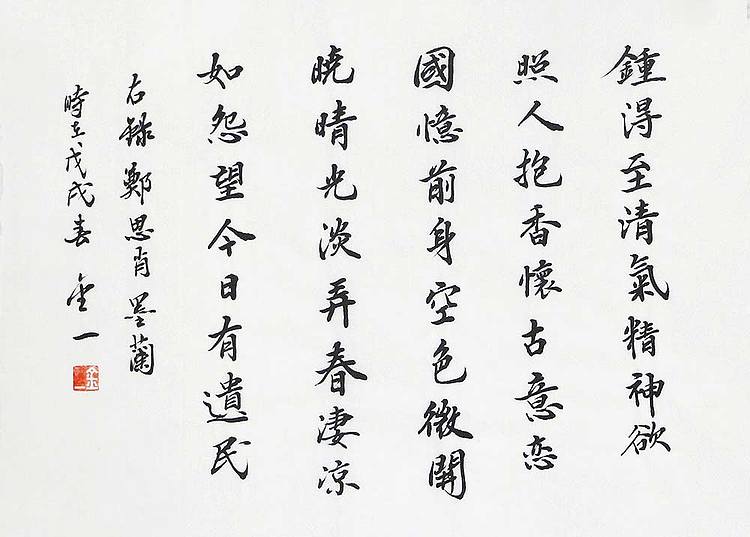 鍾得至清氣精神欲
照人抱香懷古意恋
國憶前身空色微開
曉晴光淡弄春淒凉
如怨望今日有遺民
右錄鄭思肖墨蘭
時在戊戌春金一